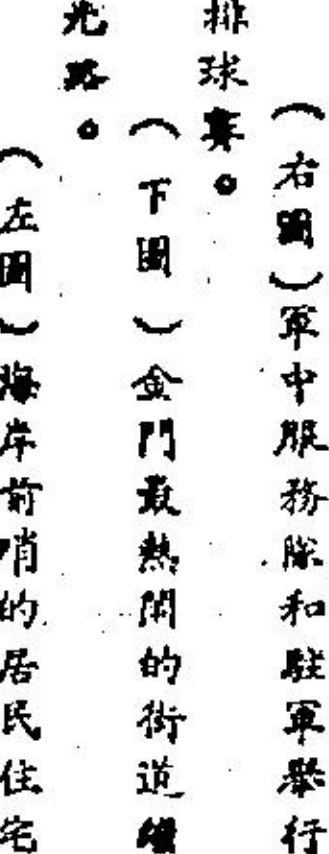 (右圖)軍中服務隊和駐軍舉行
排球賽。
(下圖)金門最熱鬧的街道
光路。
(左圖)海岸前哨的居民住宅